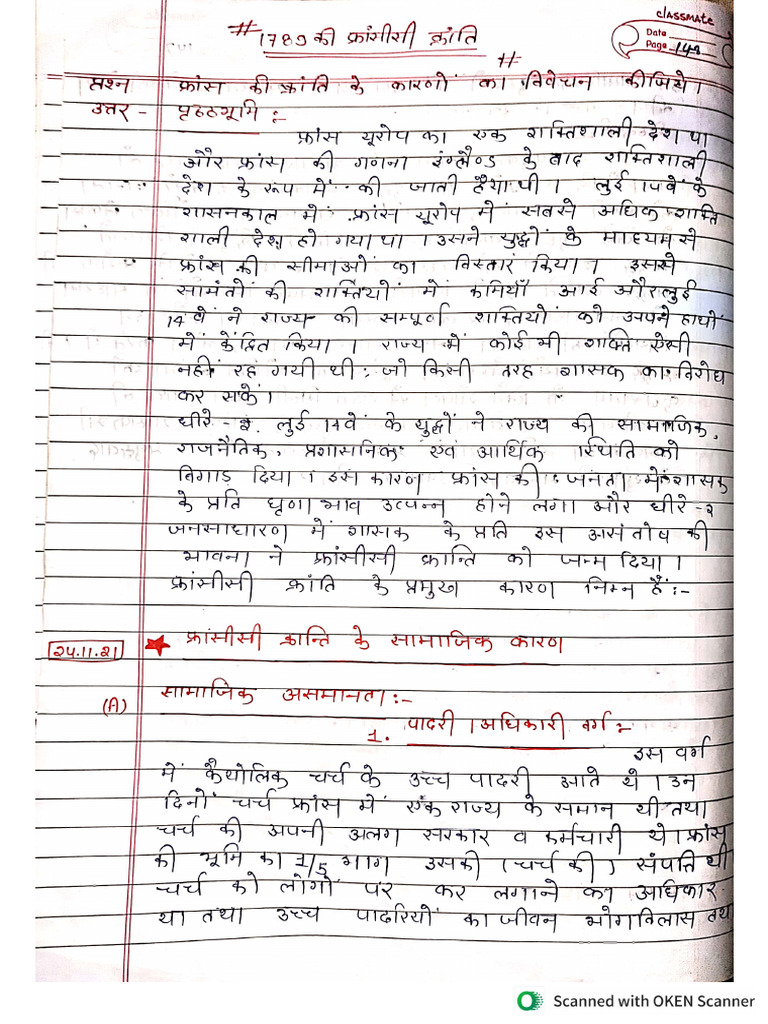 classmate
Date
Page 149
# 1789 की फ्रांसीसी क्रांति #
प्रश्न फ्रांस की क्रांति के कारणों का विवेचन कीजिये।
उत्तर - पृष्ठभूमि :-
फ्रांस यूरोप का एक शक्तिशाली देश था
और फ्रांस की गणना इंग्लैण्ड के बाद शक्तिशाली
देश के रूप में की जाती है थी। लुई 14वें के
शासनकाल में फ्रांस यूरोप में सबसे अधिक शक्ति
शाली देश हो गया था। उसने युद्धों के माध्यम से
फ्रांस की सीमाओं का विस्तार किया। इससे
सामंतों की शक्तियों में कमियाँ आई और लुई
14वें ने राज्य की सम्पूर्ण शक्तियों को अपने हाथों
में केंद्रित किया। राज्य में कोई भी शक्ति ऐसी
नहीं रह गयी थी जो किसी तरह शासक का विरोध
कर सके।
धीरे-२ लुई 14वें के युद्धों ने राज्य की सामाजिक,
राजनैतिक, प्रशासनिक एवं आर्थिक स्थिति को
बिगाड़ दिया। इस कारण फ्रांस की जनता में शासक
के प्रति घृणा भाव उत्पन्न होने लगा और धीरे-२
जनसाधारण में शासक के प्रति इस असंतोष की
भावना ने फ्रांसीसी क्रान्ति को जन्म दिया।
फ्रांसीसी क्रांति के प्रमुख कारण निम्न हैं:-
24.11.21 ★ फ्रांसीसी क्रान्ति के सामाजिक कारण
(A) सामाजिक असमानता:-
1. पादरी । अधिकारी वर्ग:-
इस वर्ग
में कैथोलिक चर्च के उच्च पादरी आते थे। उन
दिनों चर्च फ्रांस में एक राज्य के समान थी तथा
चर्च की अपनी अलग सरकार व कर्मचारी थे। फ्रांस
की भूमि का 1/5 भाग उसकी (चर्च की) संपति थी
चर्च को लोगों पर कर लगाने का अधिकार
था तथा उच्च पादरियों का जीवन भोगविलास तथा
Scanned with OKEN Scanner